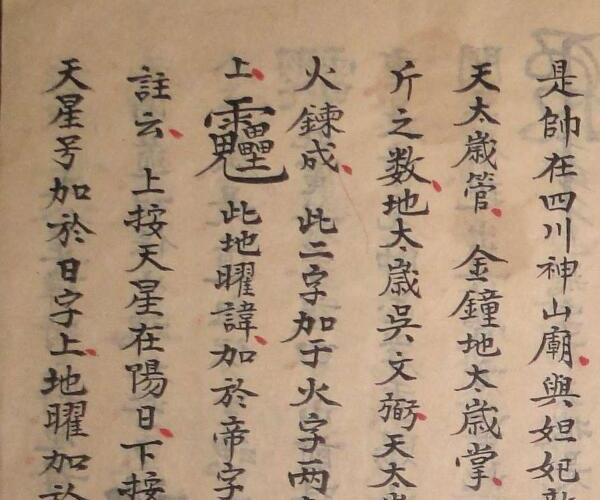 是帥在四川神山廟與妲妃
天太歲管金鐘地太歲掌
斤之数地太歲吳文弼天太歲
火鍊成此二字加于火字两
上此地曜諱加於帝字
註云上按天星在陽日下按
天星号加於日字上地曜加於